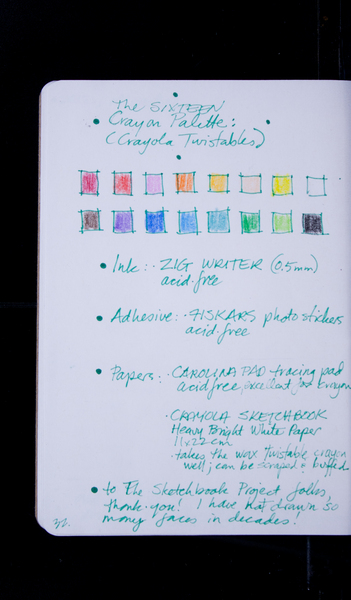 The SIXTEEN
Crayon Palette:
(Crayola Twistables)
Ink: ZIG WRITER (0.5mm)
acid-free
Adhesive: FISKARS photo stickers
acid free
Papers: CAROLINA PAD tracing pad
acid free, excellent for crayon
CRAYOLA SKETCHBOOK
Heavy Bright White Paper
11x22cm
takes the wax twistable crayon
well; can be scraped & buffed
to The Sketchbook Project folks,
thank you! I have not drawn so
many faces in decades!